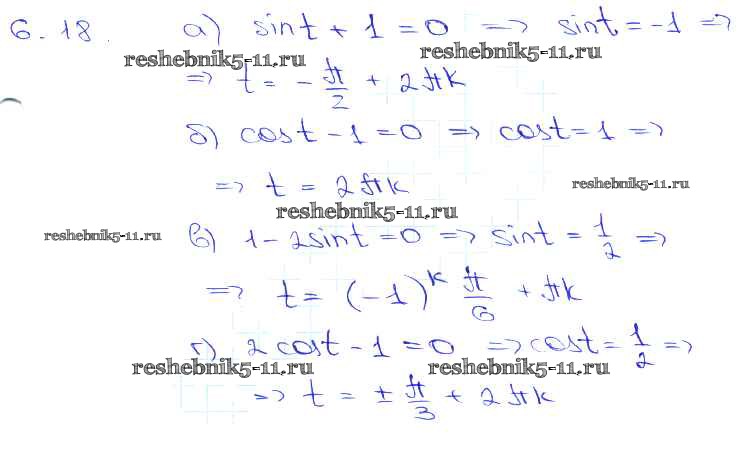 6.18. а) sint + 1 = 0 => sint = -1 =>
reshebnik5-11.ru reshebnik5-11.ru
=> t = - π/2 + 2πk
б) cost - 1 = 0 => cost = 1 =>
=> t = 2πk reshebnik5-11.ru
reshebnik5-11.ru
reshebnik5-11.ru в) 1 - 2sint = 0 => sint = 1/2 =>
=> t = (-1)^k π/6 + πk
г) 2cost - 1 = 0 => cost = 1/2 =>
reshebnik5-11.ru reshebnik5-11.ru
=> t = ± π/3 + 2πk